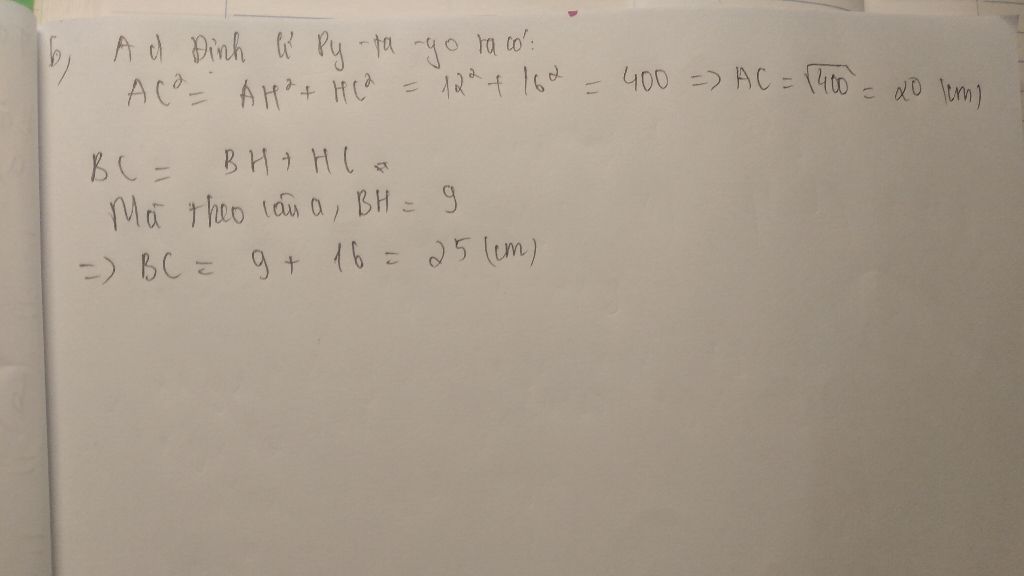 b, A d Định lí Py-ta-go ta có:
AC² = AH² + HC² = 12² + 16² = 400 => AC = √400 = 20 (cm)
BC = BH + HC
Mà theo câu a, BH = 9
=> BC = 9 + 16 = 25 (cm)